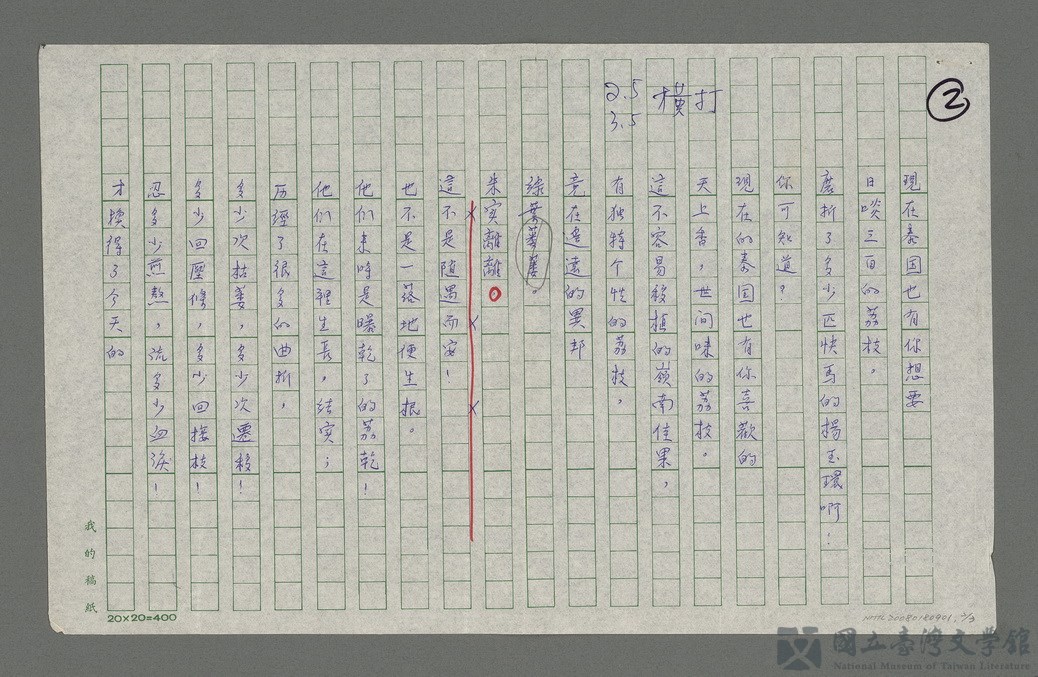 ②
2.5 橫打
3.5
現在泰国也有你想要
日啖三百的荔枝，
磨折了多少匹快馬的楊玉環啊！
你可知道？
現在的泰国也有你喜歡的
天上香，世间味的荔枝。
這不容易移植的嶺南佳果，
有独特个性的荔枝，
竟在遙遠的異邦
綠葉萋萋。
朱实離離。
這不是随遇而安！
也不是一落地便生根。
他们来時是曝乾了的荔乾！
他们在這裡生長，结实；
历經了很多的曲折，
多少次枯萎，多少次遷移！
多少回壓條，多少回接枝！
忍多少煎熬，流多少血淚！
才換得了今天的
我的稿紙
20×20=400
NMTL20080180901, 2/3
國立臺灣文學館
National Museum of Taiwan Literature